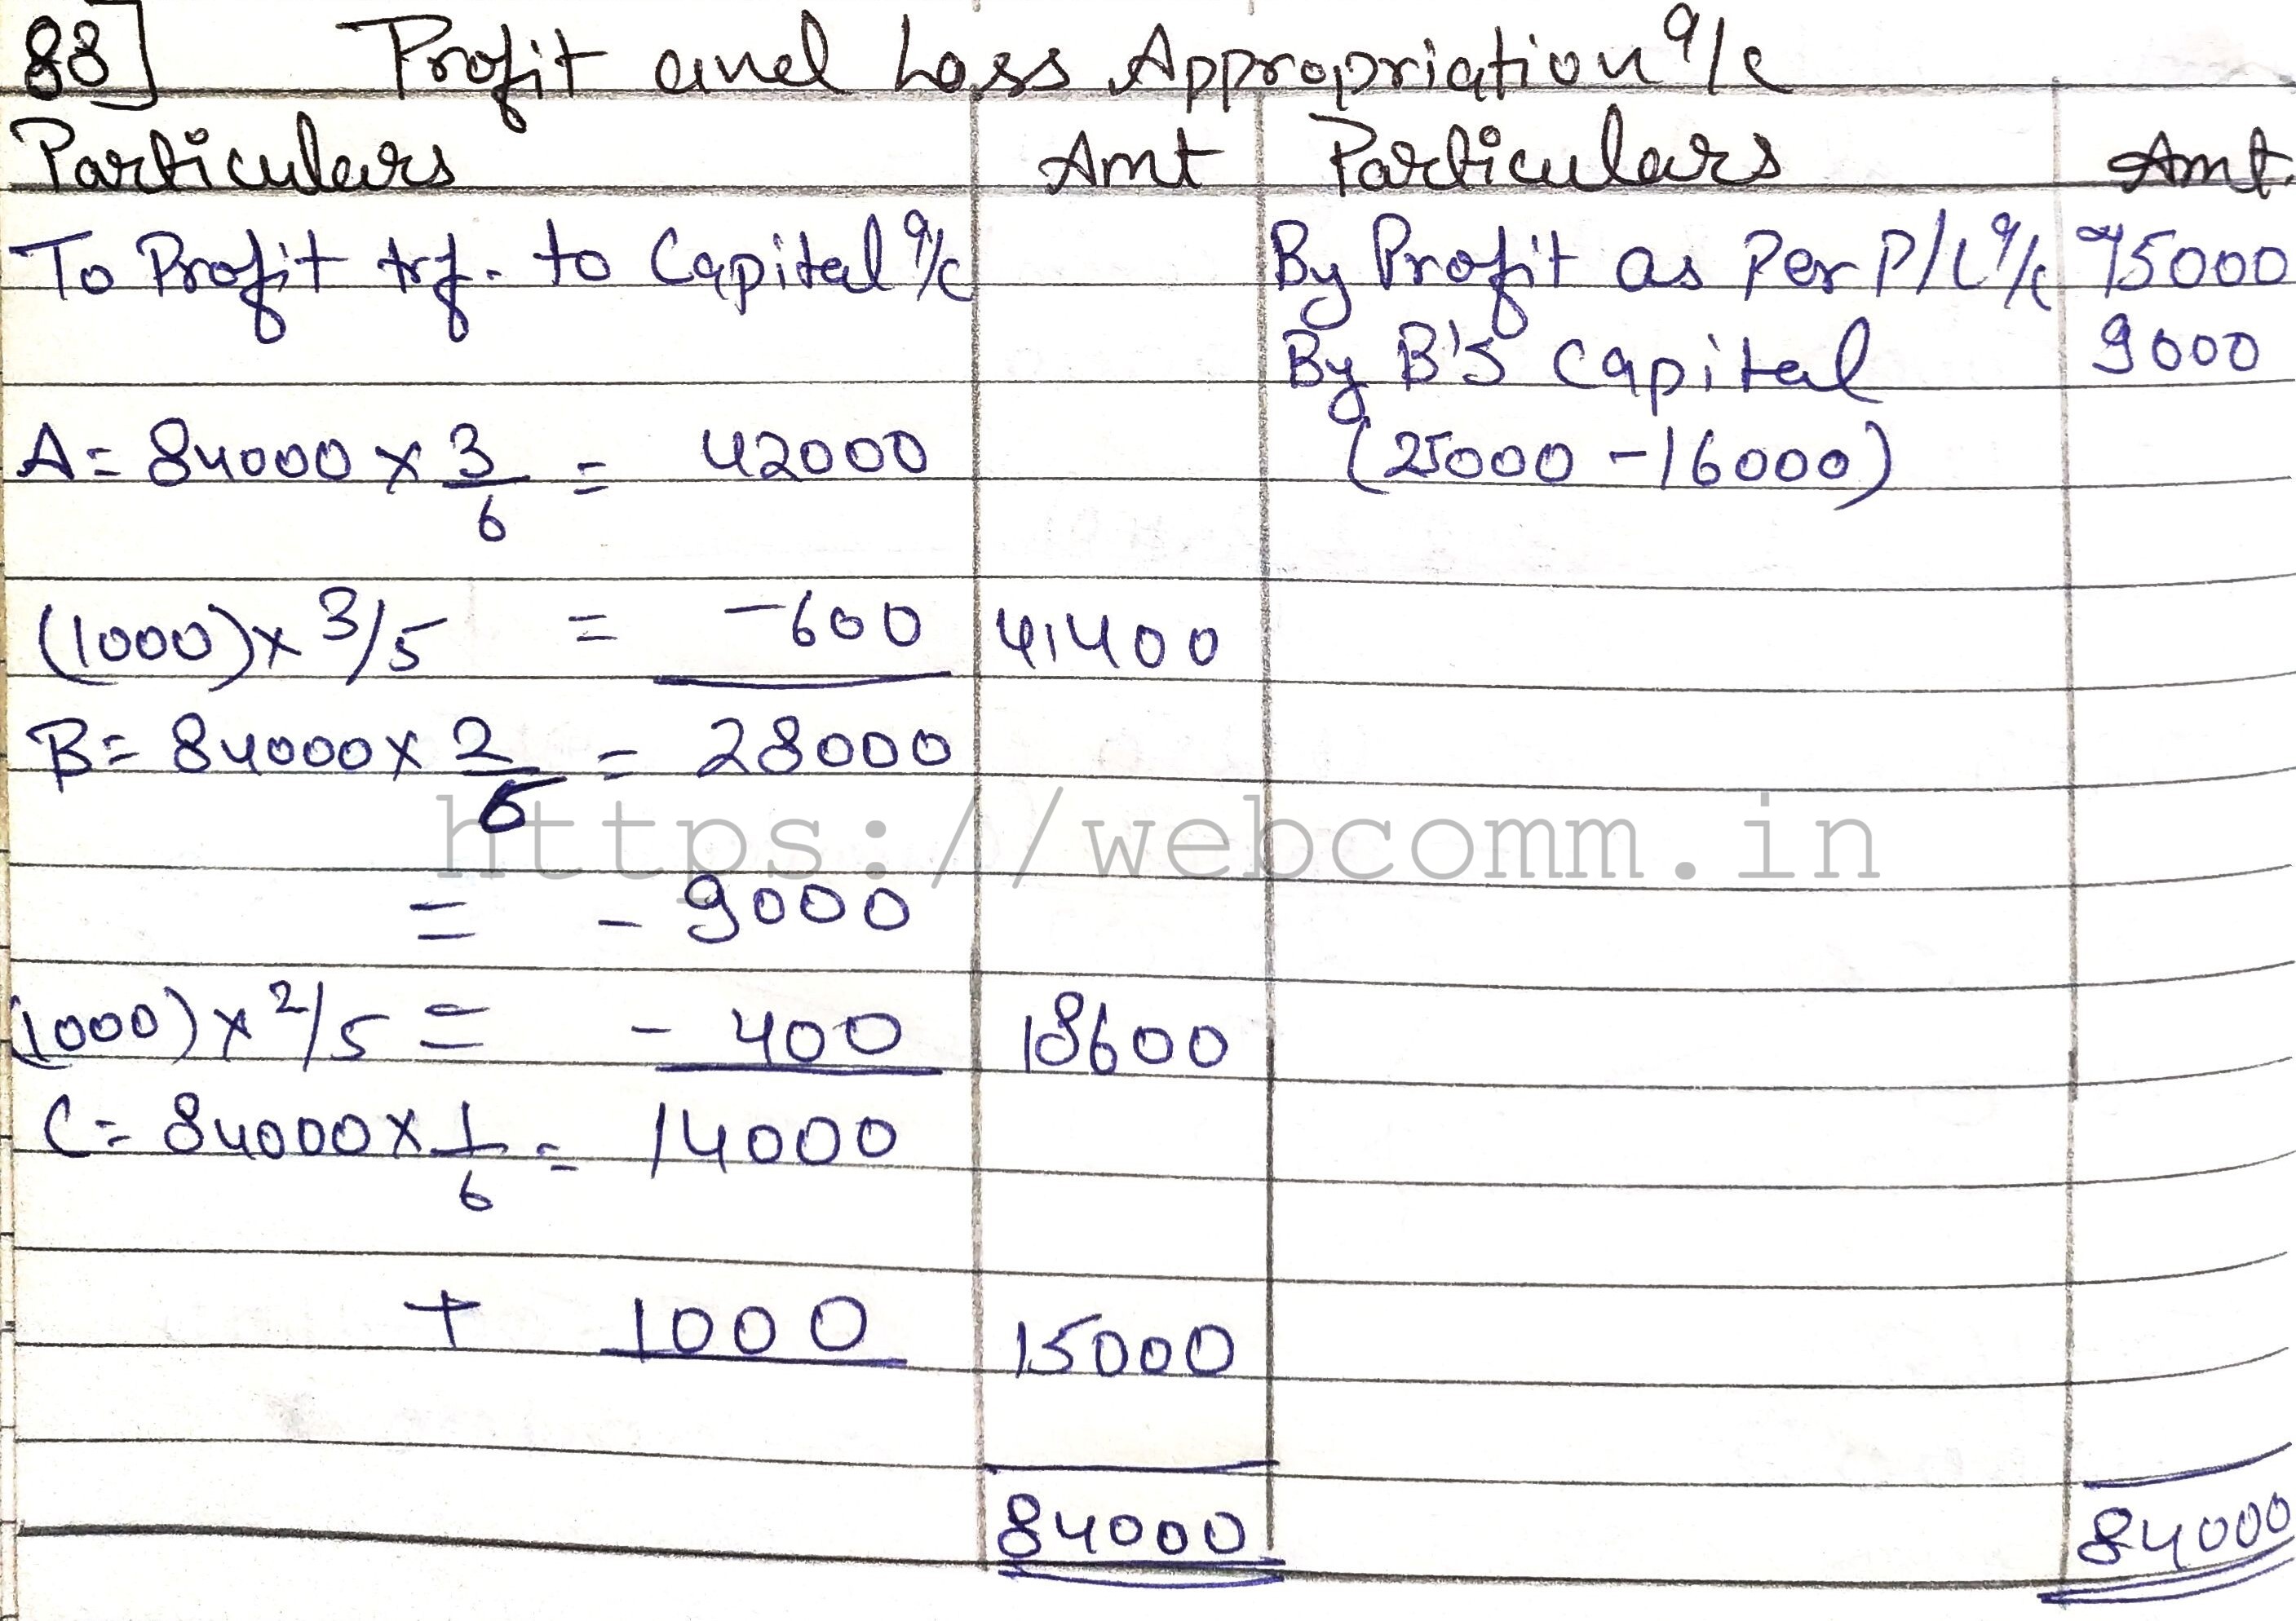 88] Profit and Loss Appropriation a/c
Particulars Amt Particulars Amt.
To Profit trf. to Capital a/c By Profit as Per P/L a/c 75000
By B's Capital 9000
A= 84000 × 3/6 = 42000 (25000 - 16000)
(1000) × 3/5 = -600 41400
B= 84000 × 2/6 = 28000
https://webcomm.in
= - 9000
(1000) × 2/5 = - 400 18600
C= 84000 × 1/6 = 14000
+ 1000 15000
84000 84000